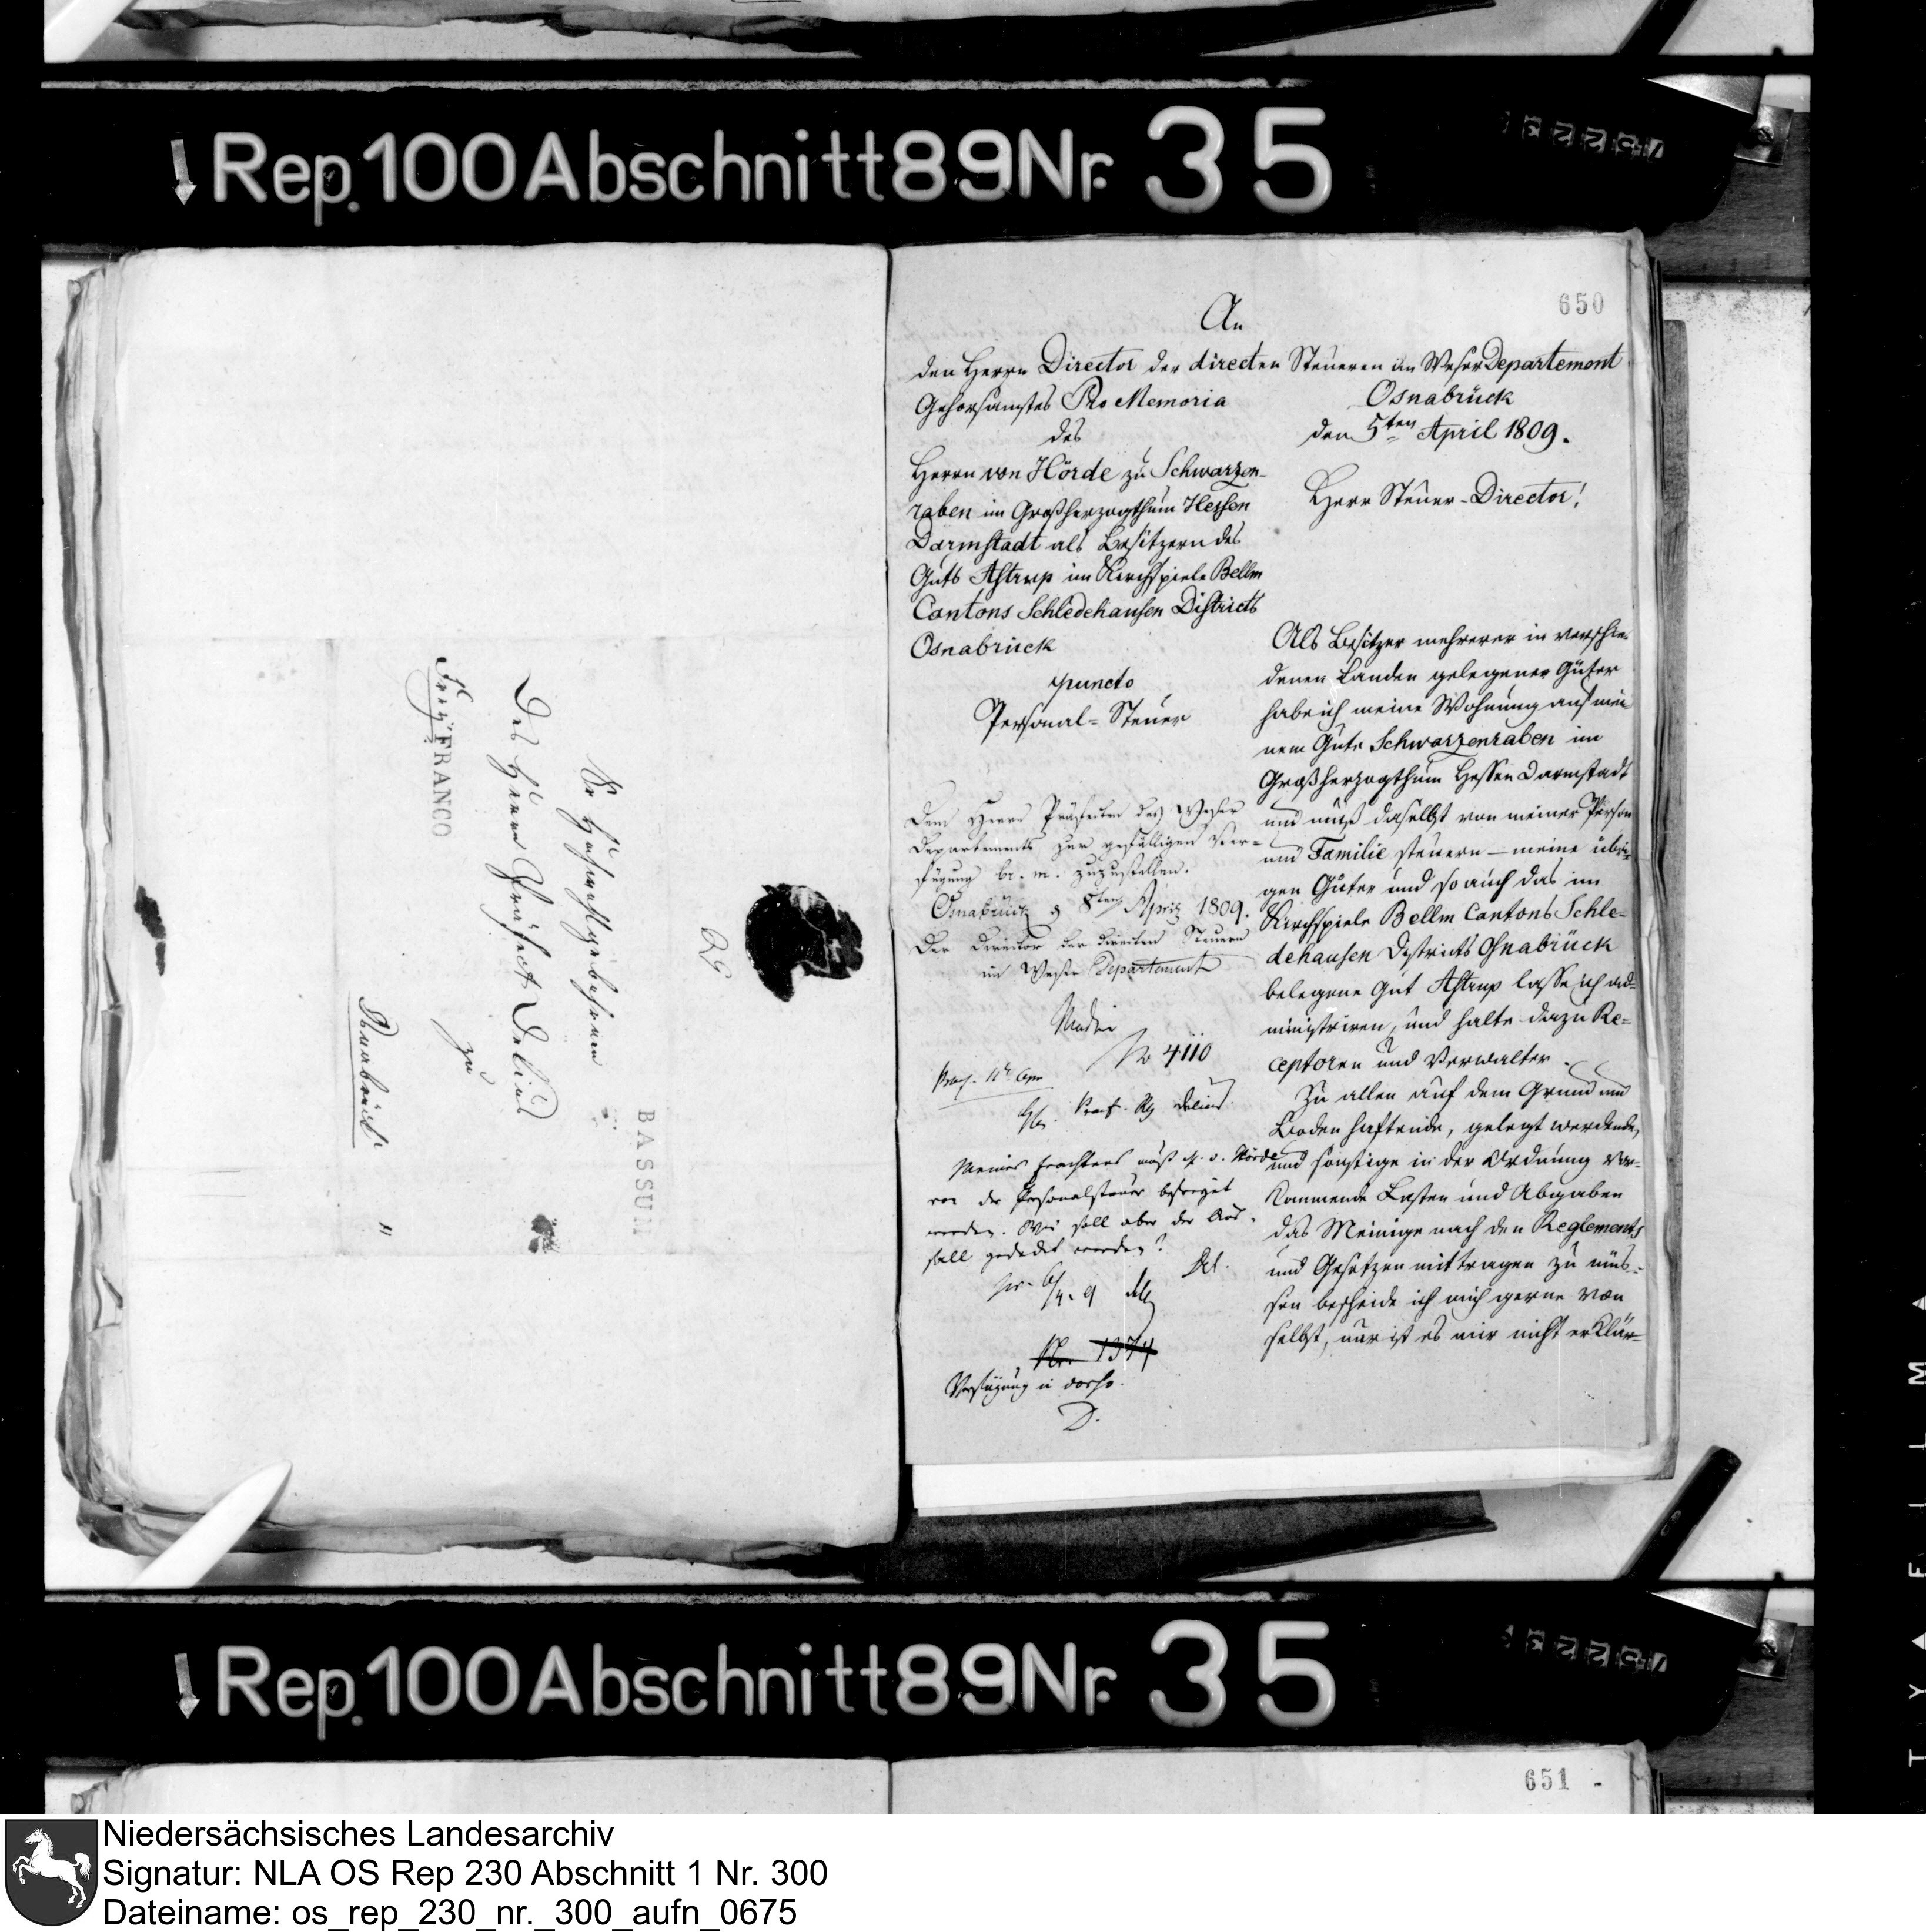 Rep. 100 Abschnitt 89 Nr. 35
Sr Hochwohlgebohren
Des Herrn Präfect Delius
zu
Osnabrück
Frey
FRANCO
BASSUM
650
An
den Herrn Director der directen Steuern im Weser Departement
Gehorsamstes Pro Memoria
des
Herrn von Hörde zu Schwarzen-
raben im Großherzogthum Hessen
Darmstadt als Besitzern des
Guts Astrup im Kirchspiele Bellm
Cantons Schledehausen Districts
Osnabrück
puncto
Personal-Steuer
Dem Herrn Präfecten des Weser
Departements zur gefälligen Ver-
fügung br. m. zuzustellen.
Osnabrück d 8ten April 1809.
Der Director der directen Steuern
im Weser Departement
No 4110
Delius.
Meines Erachtens muß H. v. Hörde
von der Personalsteuer befreyet
werden. Wie soll aber der Aus-
fall gedeckt werden?
Nr. 1374
Verfügung in dorso.
D.
Osnabrück
den 5ten April 1809.
Herr Steuer-Director!
Als Besitzer mehrerer in verschie-
denen Landen gelegener Güter
habe ich meine Wohnung auf mei-
nem Gute Schwarzenraben im
Großherzogthum Hessen Darmstadt
und muß daselbst von meiner Person
und Familie steuern – meine übri-
gen Güter und so auch das im
Kirchspiele Bellm Cantons Schle-
dehausen Districts Osnabrück
belegene Gut Astrup lasse ich ad-
ministriren, und halte dazu Re-
ceptoren und Verwalter.
Zu allen auf dem Grund und
Boden haftende, gelegt werdende,
und sonstige in der Ordnung vor-
kommende Lasten und Abgaben
das Meinige nach den Reglements
und Gesetzen mittragen zu müs-
sen bescheide ich mich gerne von
selbst, nur ist es mir nicht erklär-
Rep. 100 Abschnitt 89 Nr. 35
651
Niedersächsisches Landesarchiv
Signatur: NLA OS Rep 230 Abschnitt 1 Nr. 300
Dateiname: os_rep_230_nr._300_aufn_0675